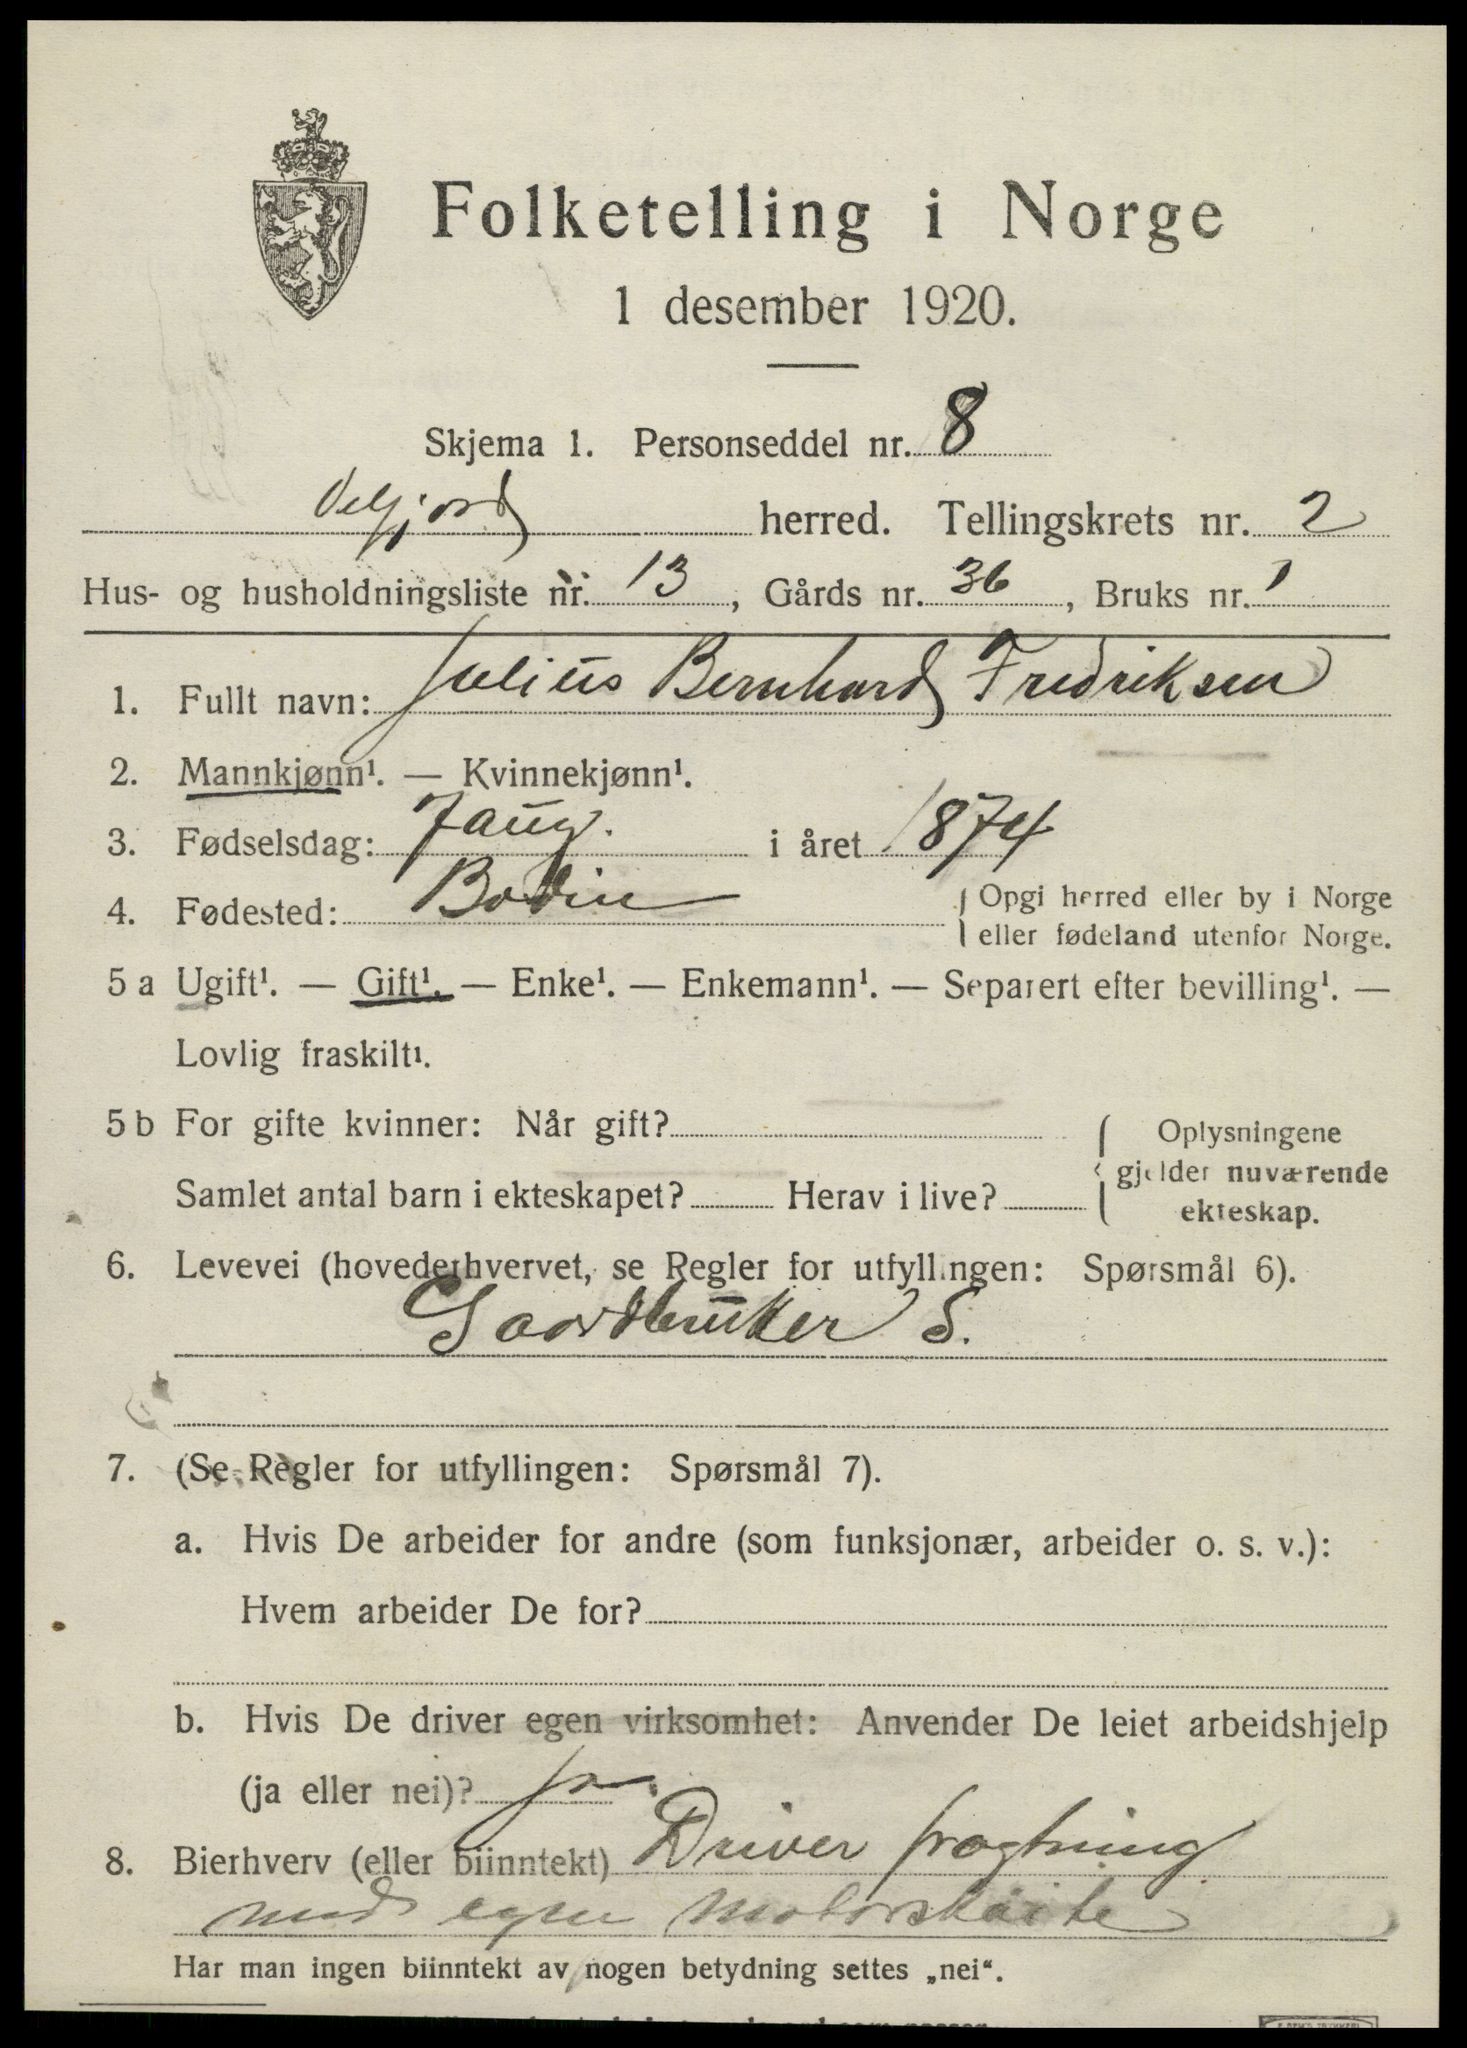 Folketelling i Norge
1 desember 1920.
Skjema 1. Personseddel nr. 8
Velfjord herred. Tellingskrets nr. 2
Hus- og husholdningsliste nr. 13, Gårds nr. 36, Bruks nr. 1
1. Fullt navn: Julius Bernhard Fredriksen
2. Mannkjønn¹. — Kvinnekjønn¹.
3. Fødselsdag: 7 aug. i året 1874
4. Fødested: Bodin { Opgi herred eller by i Norge
eller fødeland utenfor Norge.
5 a Ugift¹. — Gift¹. — Enke¹. — Enkemann¹. — Separert efter bevilling¹. —
Lovlig fraskilt¹.
5 b For gifte kvinner: Når gift? { Oplysningene
gjelder nuværende
Samlet antal barn i ekteskapet? Herav i live?
ekteskap.
6. Levevei (hovederhvervet, se Regler for utfyllingen: Spørsmål 6).
Gaardbruker S.
7. (Se Regler for utfyllingen: Spørsmål 7).
a. Hvis De arbeider for andre (som funksjonær, arbeider o. s. v.):
Hvem arbeider De for?
b. Hvis De driver egen virksomhet: Anvender De leiet arbeidshjelp
(ja eller nei)? Ja.
8. Bierhverv (eller biinntekt) Driver fragtning
med egen Motorskøite
Har man ingen biinntekt av nogen betydning settes „nei“.